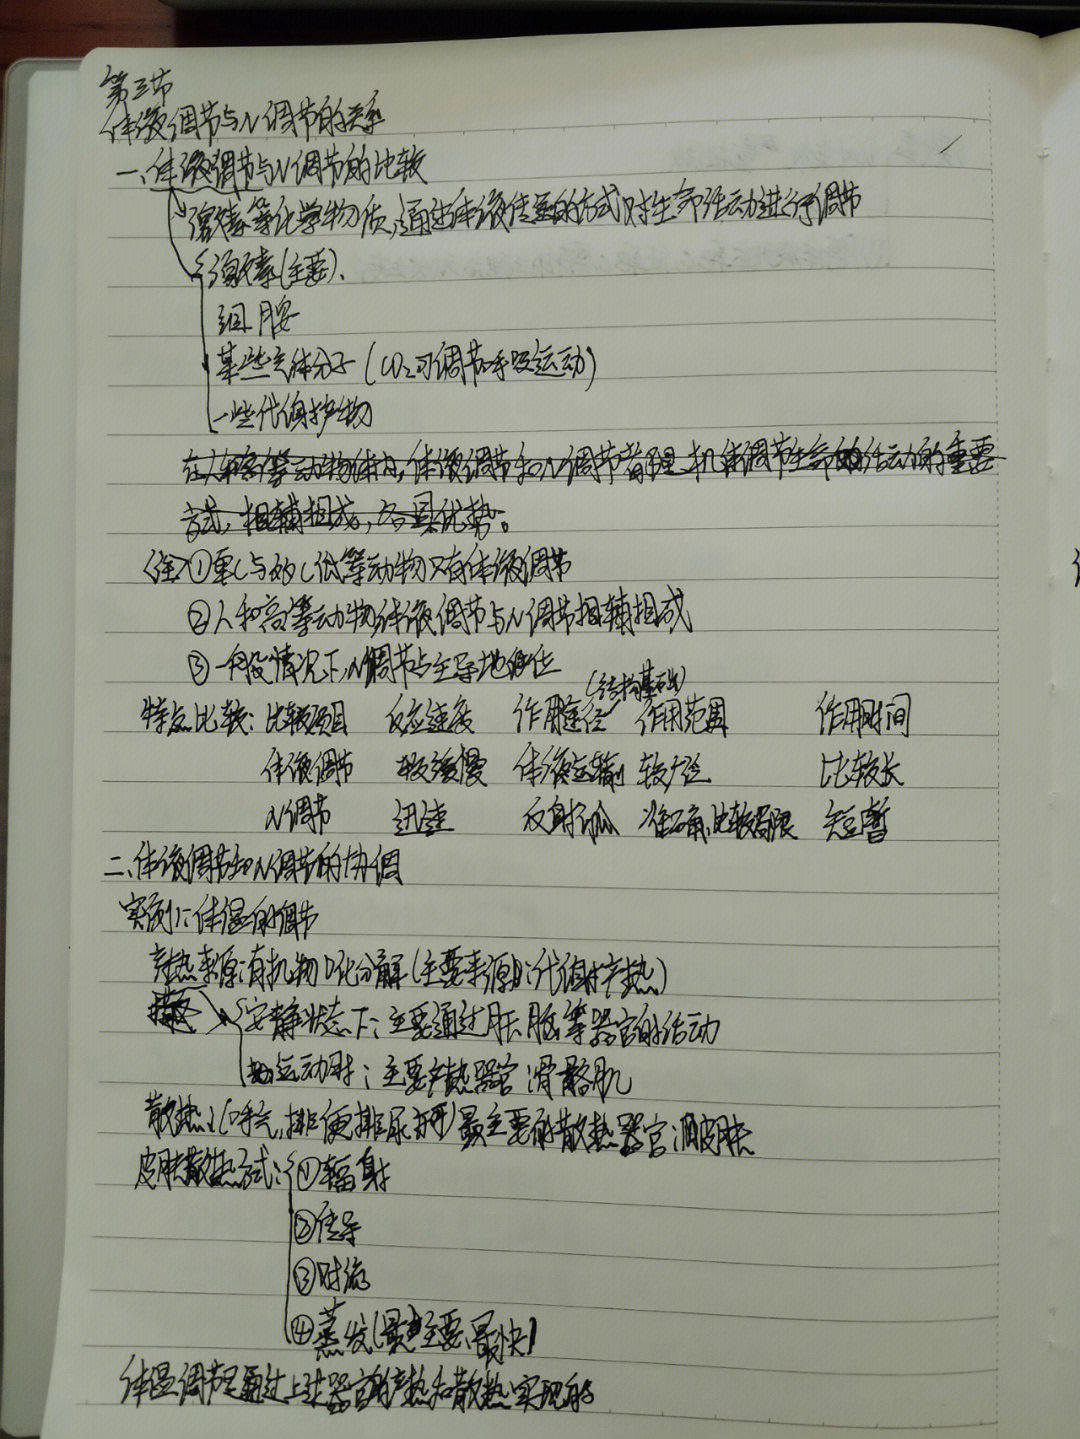 第三节
体液调节与N调节的关系
一、体液调节与N调节的比较
激素等化学物质,通过体液传送的方式对生命活动进行调节
激素(主要).
组胺
某些气体分子(CO₂可调节呼吸运动)
一些代谢产物
在人和高等动物体内,体液调节和N调节都是机体调节生命活动的重要
方式,相辅相成,各具优势。
〈注〉①单C与多C低等动物只有体液调节
②人和高等动物体液调节与N调节相辅相成
③一般情况下,N调节占主导地位
(结构基础)
特点比较:比较项目 反应速度 作用途径 作用范围 作用时间
体液调节 较缓慢 体液运输 较广泛 比较长
N调节 迅速 反射弧 准确、比较局限 短暂
二、体液调节和N调节的协调
实例1:体温的调节
产热来源:有机物O化分解(主要来源):代谢产热)
安静状态下:主要通过肝、脑等器官的活动
运动时:主要产热器官:骨骼肌
散热:(呼气,排便排尿)最主要的散热器官:皮肤
皮肤散热方式:①辐射
②传导
③对流
④蒸发(最主要、最快)
体温调节是通过上述器官的产热和散热实现的